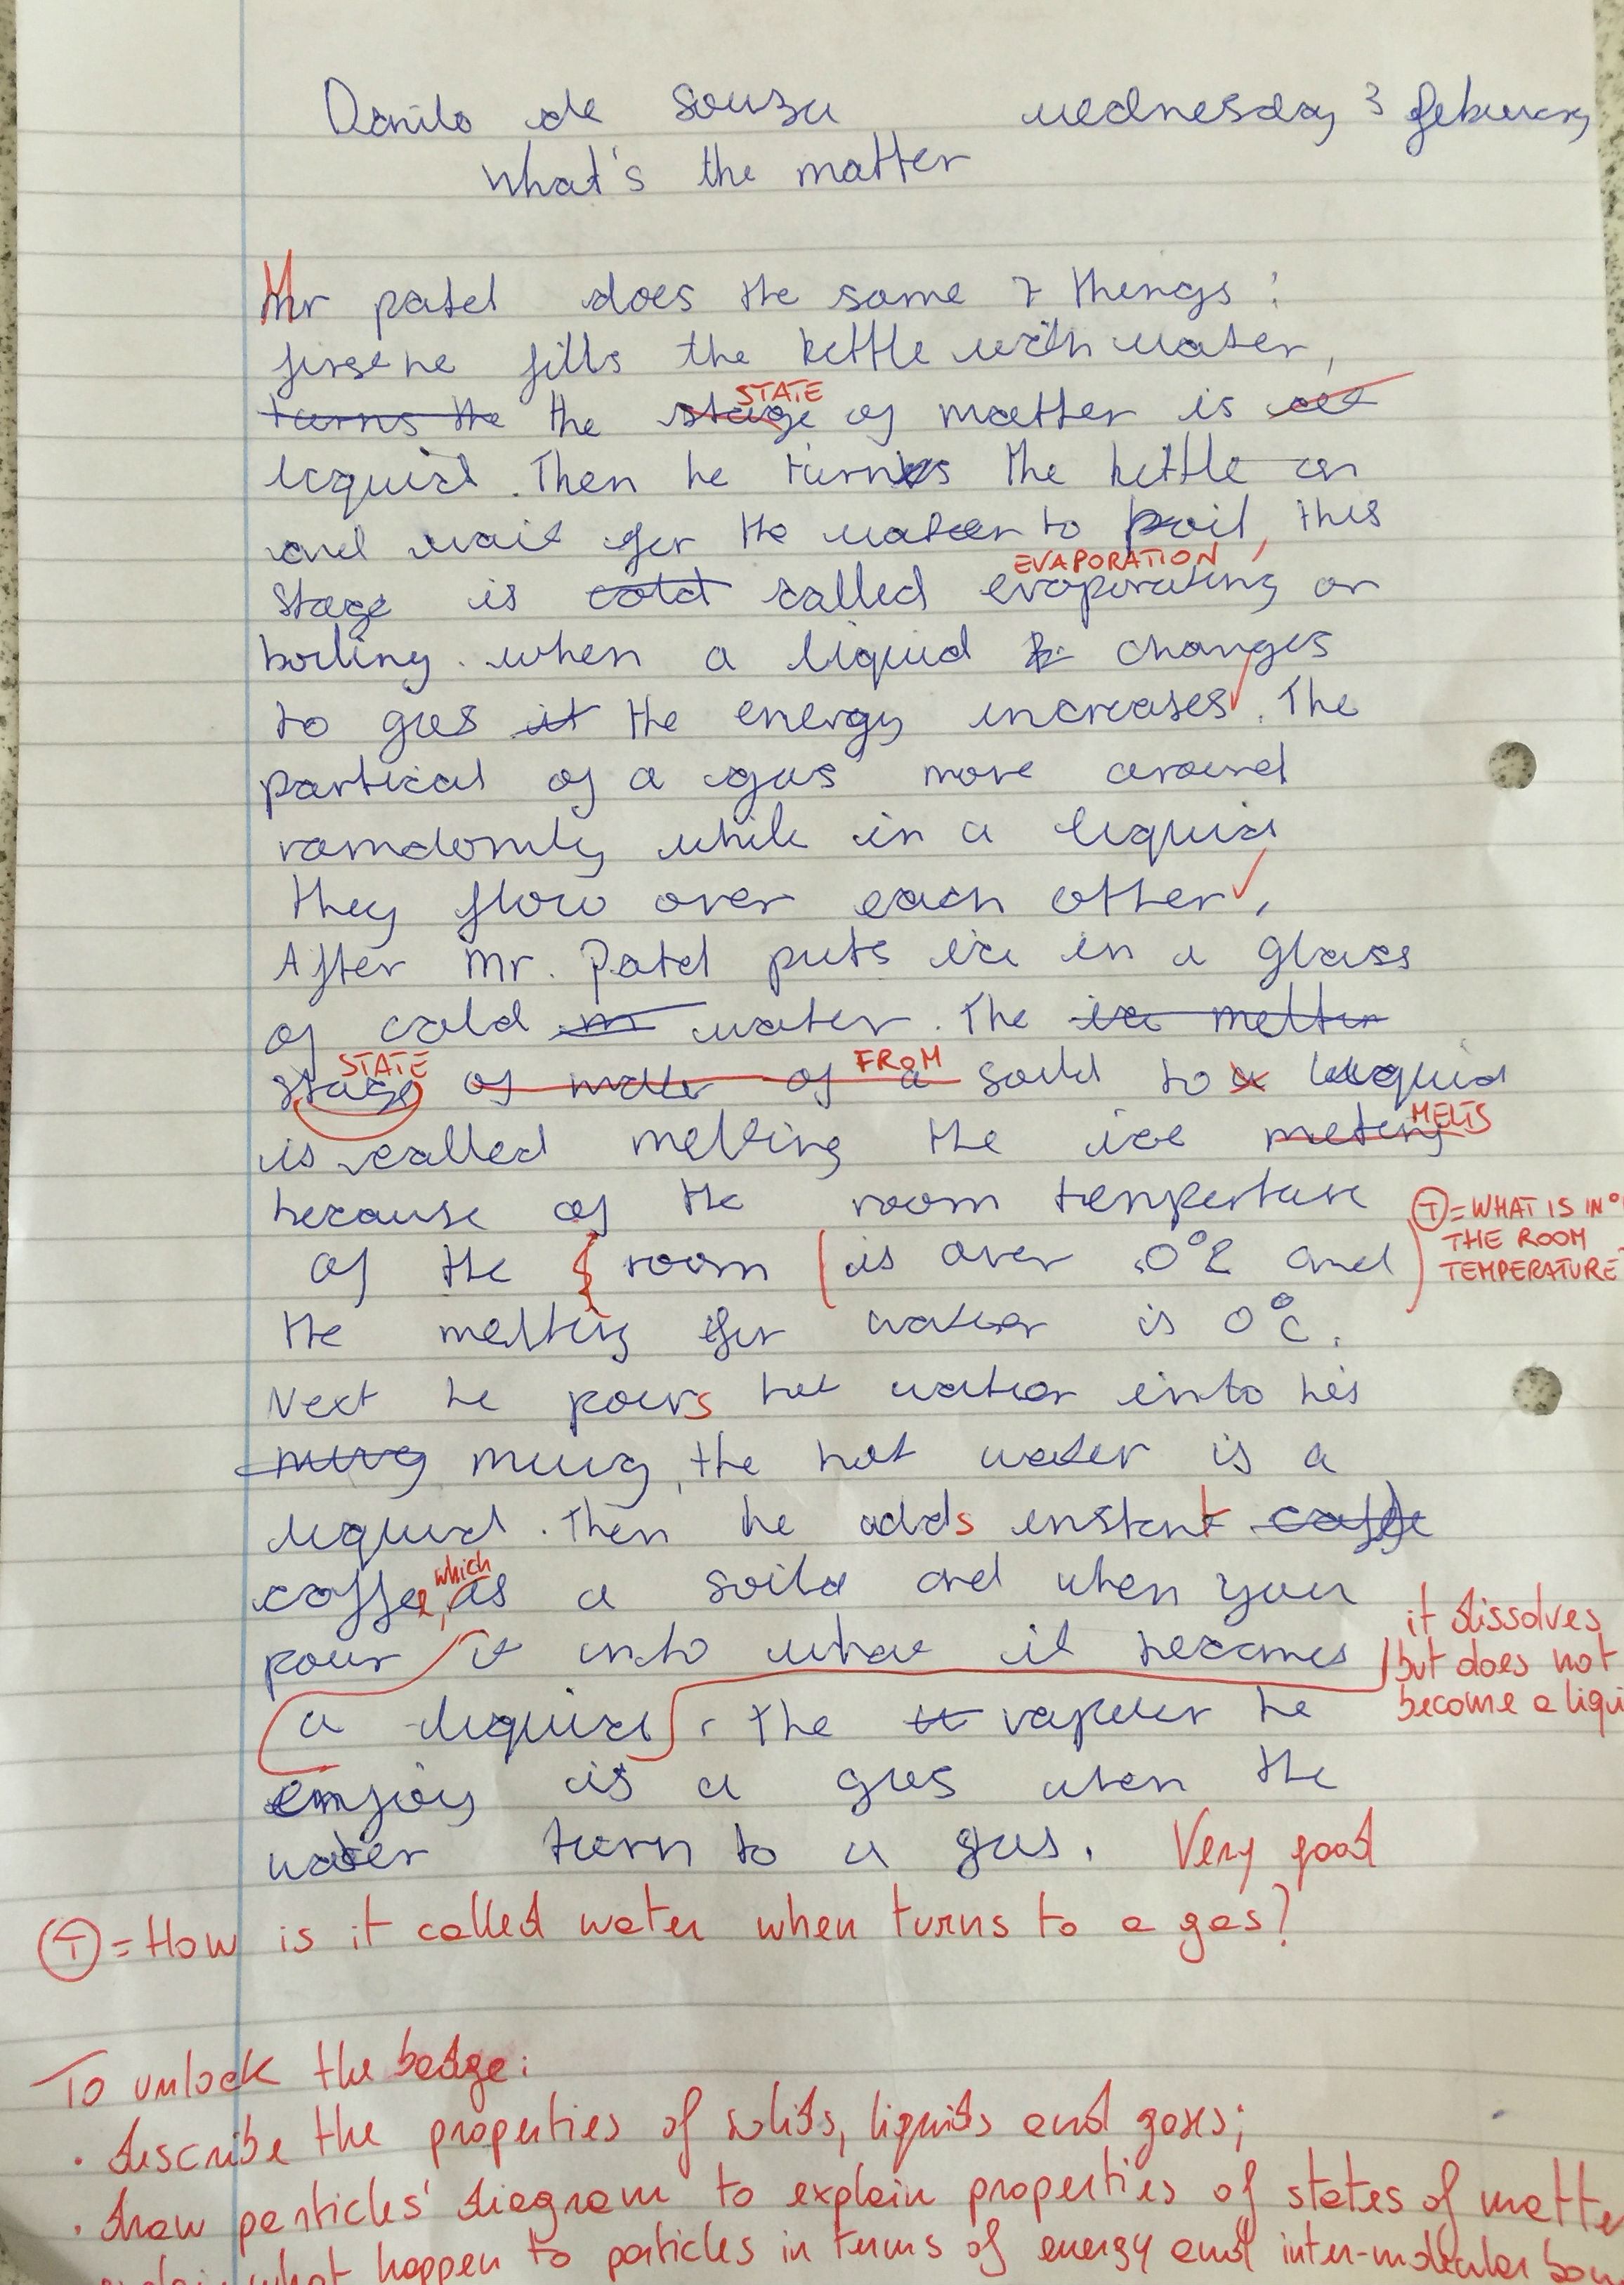 Danilo de Souza wednesday 3 feburary
What's the matter
Mr patel does the same 7 things :
firsthe fills the kettle with water,
turns the the stage STATE of matter is
liquid. Then he turns the kettle on
and wait for the water to boil, this
stage is cold called evaporating EVAPORATION or
boiling. when a liquid changes
to gas it the energy increases. The
partical of a gas move around
ramdomly while in a liquid
they flow over each other,
After Mr. Patel puts ice in a glass
of cold water. The ice melter
stage STATE of matter of a FROM soild to a liquid
is called melting the ice meting MELTS
because of the room temperture
of the room is over 0°C and
the melting for water is 0°C.
T = WHAT IS IN
THE ROOM
TEMPERATURE
Next he pours hot water into his
mug mug, the hot water is a
liquid. Then he adds instant coffe
coffee, which is a soild and when you
pour it into what it becomes
a liquid. the vapour he
it dissolves
but does not
become a
enjoy is a gas when the
water turn to a gas. Very good
T = How is it called water when turns to a gas?
To unlock the badge:
· describe the properties of solids, liquids and gases;
· draw particles' diagram to explain properties of states of
what happen to particles in terms of energy and inter-molecular